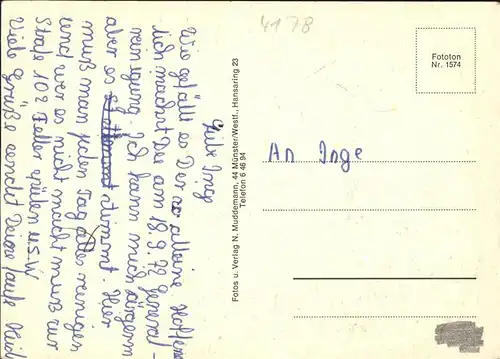 4178
Liebe Inge
Wie gefällt es Dir so alleine. Hoffent
lich machst Du am 18.9.72 General-
reinigung. Ich kann mich ärgern
aber es stimmt. Hier
muß man jeden Tag alles reinigen
und wer es nicht macht muß zur
Strafe 102 Teller spülen u.s.w
Viele Grüße sendet Deine
Fotos u. Verlag N. Muddemann, 44 Münster/Westf., Hansaring 23
Telefon 6 46 94
Fototon
Nr. 1574
An Inge